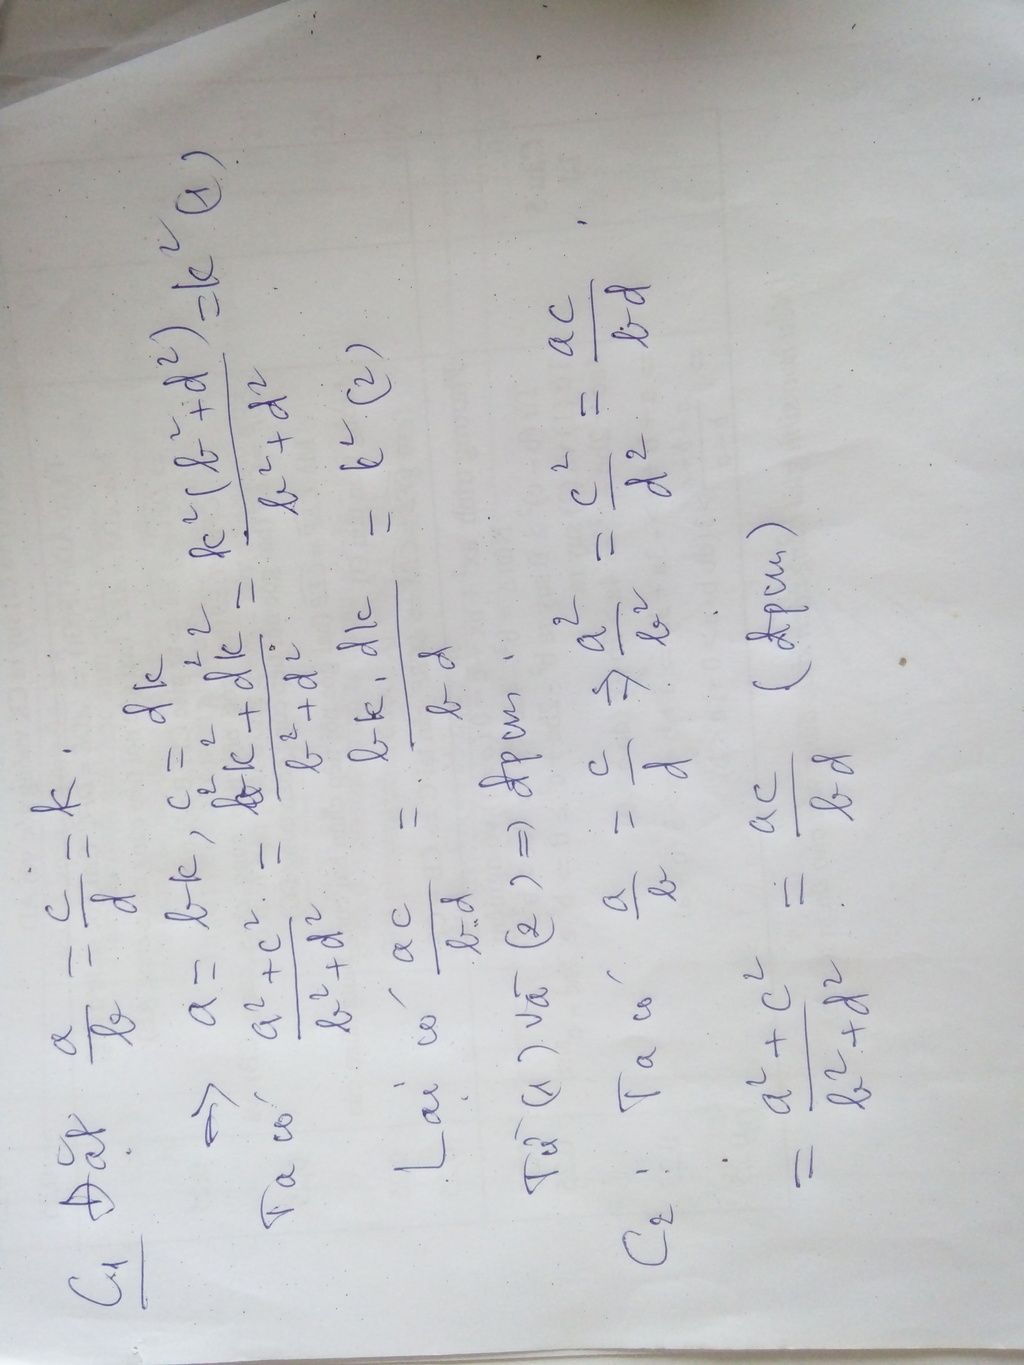 C1 Đặt a/b = c/d = k.
=> a = bk, c = dk
Ta có (a² + c²)/(b² + d²) = (b²k² + d²k²)/(b² + d²) = k²(b² + d²)/(b² + d²) = k² (1)
Lại có ac/bd = bk.dk/bd = k² (2)
Từ (1) và (2) => đpcm.
C2: Ta có a/b = c/d => a²/b² = c²/d² = ac/bd.
= (a² + c²)/(b² + d²) = ac/bd (đpcm)